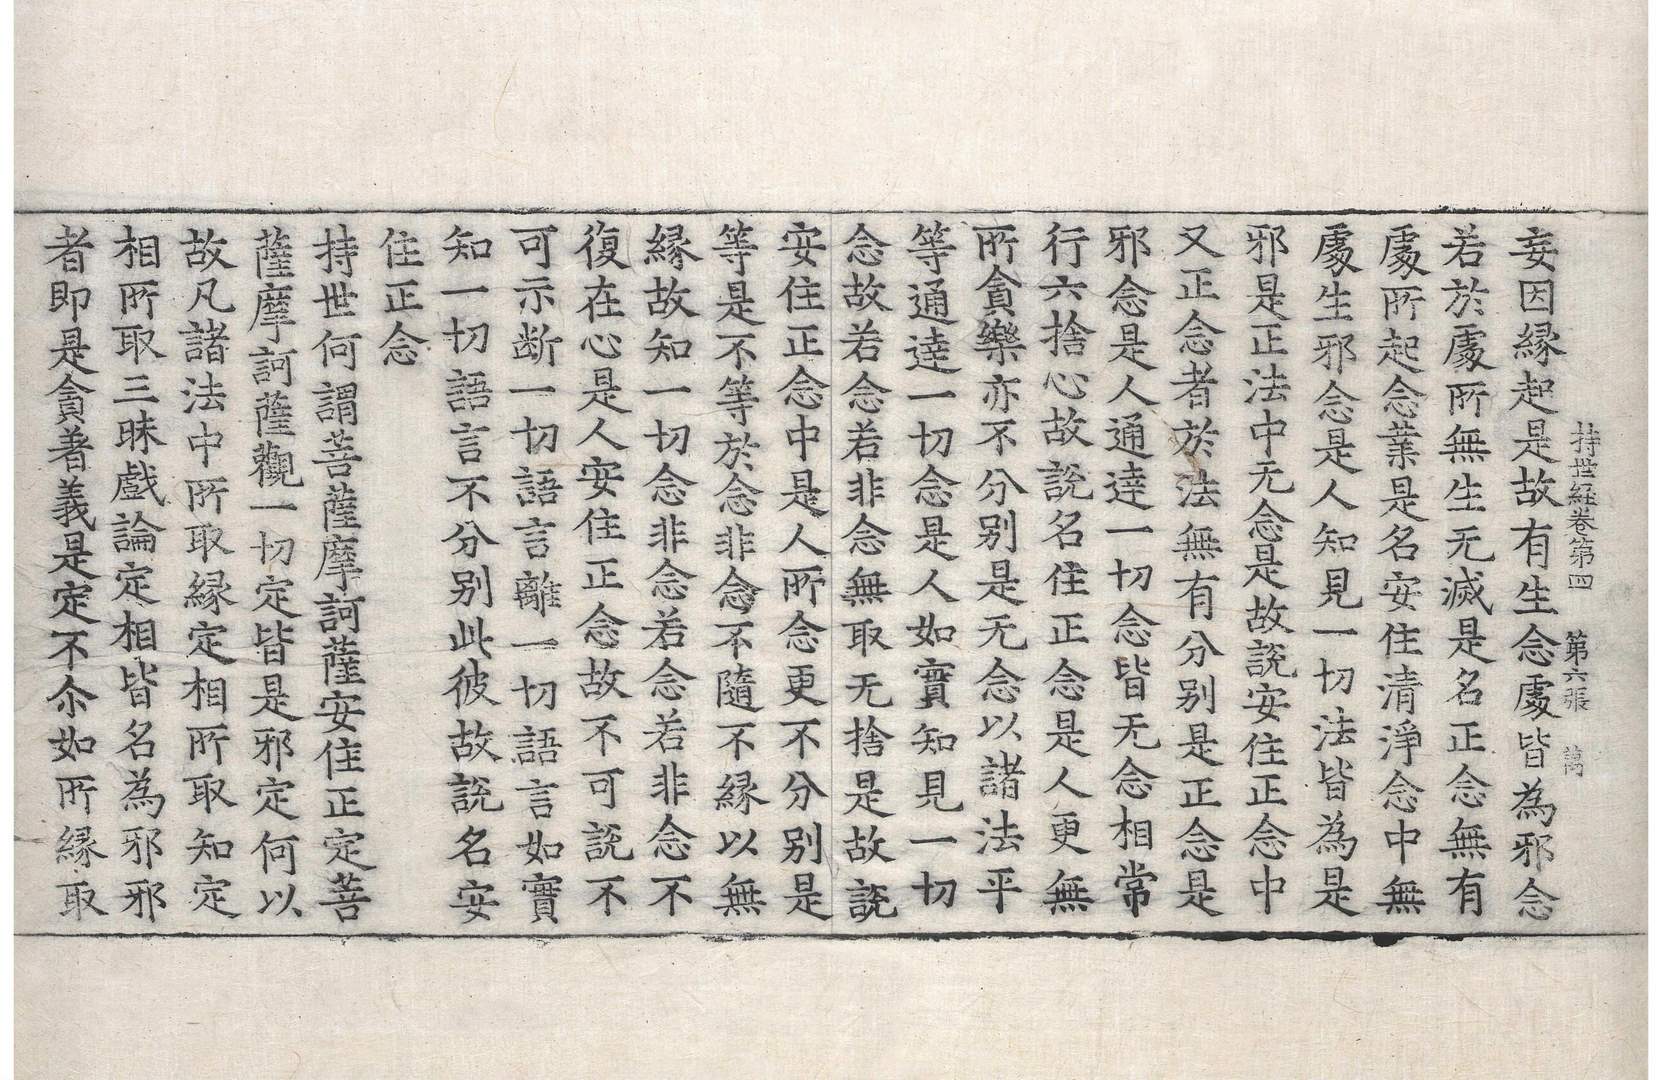 持世経卷第四　第六張　萬
妄因縁起是故有生念處皆為邪念
若於處所無生无滅是名正念無有
處所起念業是名安住清淨念中無
處生邪念是人知見一切法皆為是
邪是正法中无念是故說安住正念中
又正念者於法無有分別是正念是
邪念是人通達一切念皆无念相常
行六捨心故說名住正念是人更無
所貪樂亦不分別是无念以諸法平
等通達一切念是人如實知見一切
念故若念若非念無取无捨是故說
安住正念中是人所念更不分別是
等是不等於念非念不隨不縁以無
縁故知一切念非念若念若非念不
復在心是人安住正念故不可說不
可示断一切語言離一切語言如實
知一切語言不分別此彼故說名安
住正念
持世何謂菩薩摩訶薩安住正定菩
薩摩訶薩觀一切定皆是邪定何以
故凡諸法中所取縁定相所取知定
相所取三昧戲論定相皆名為邪邪
者即是貪著義是定不尒如所縁取